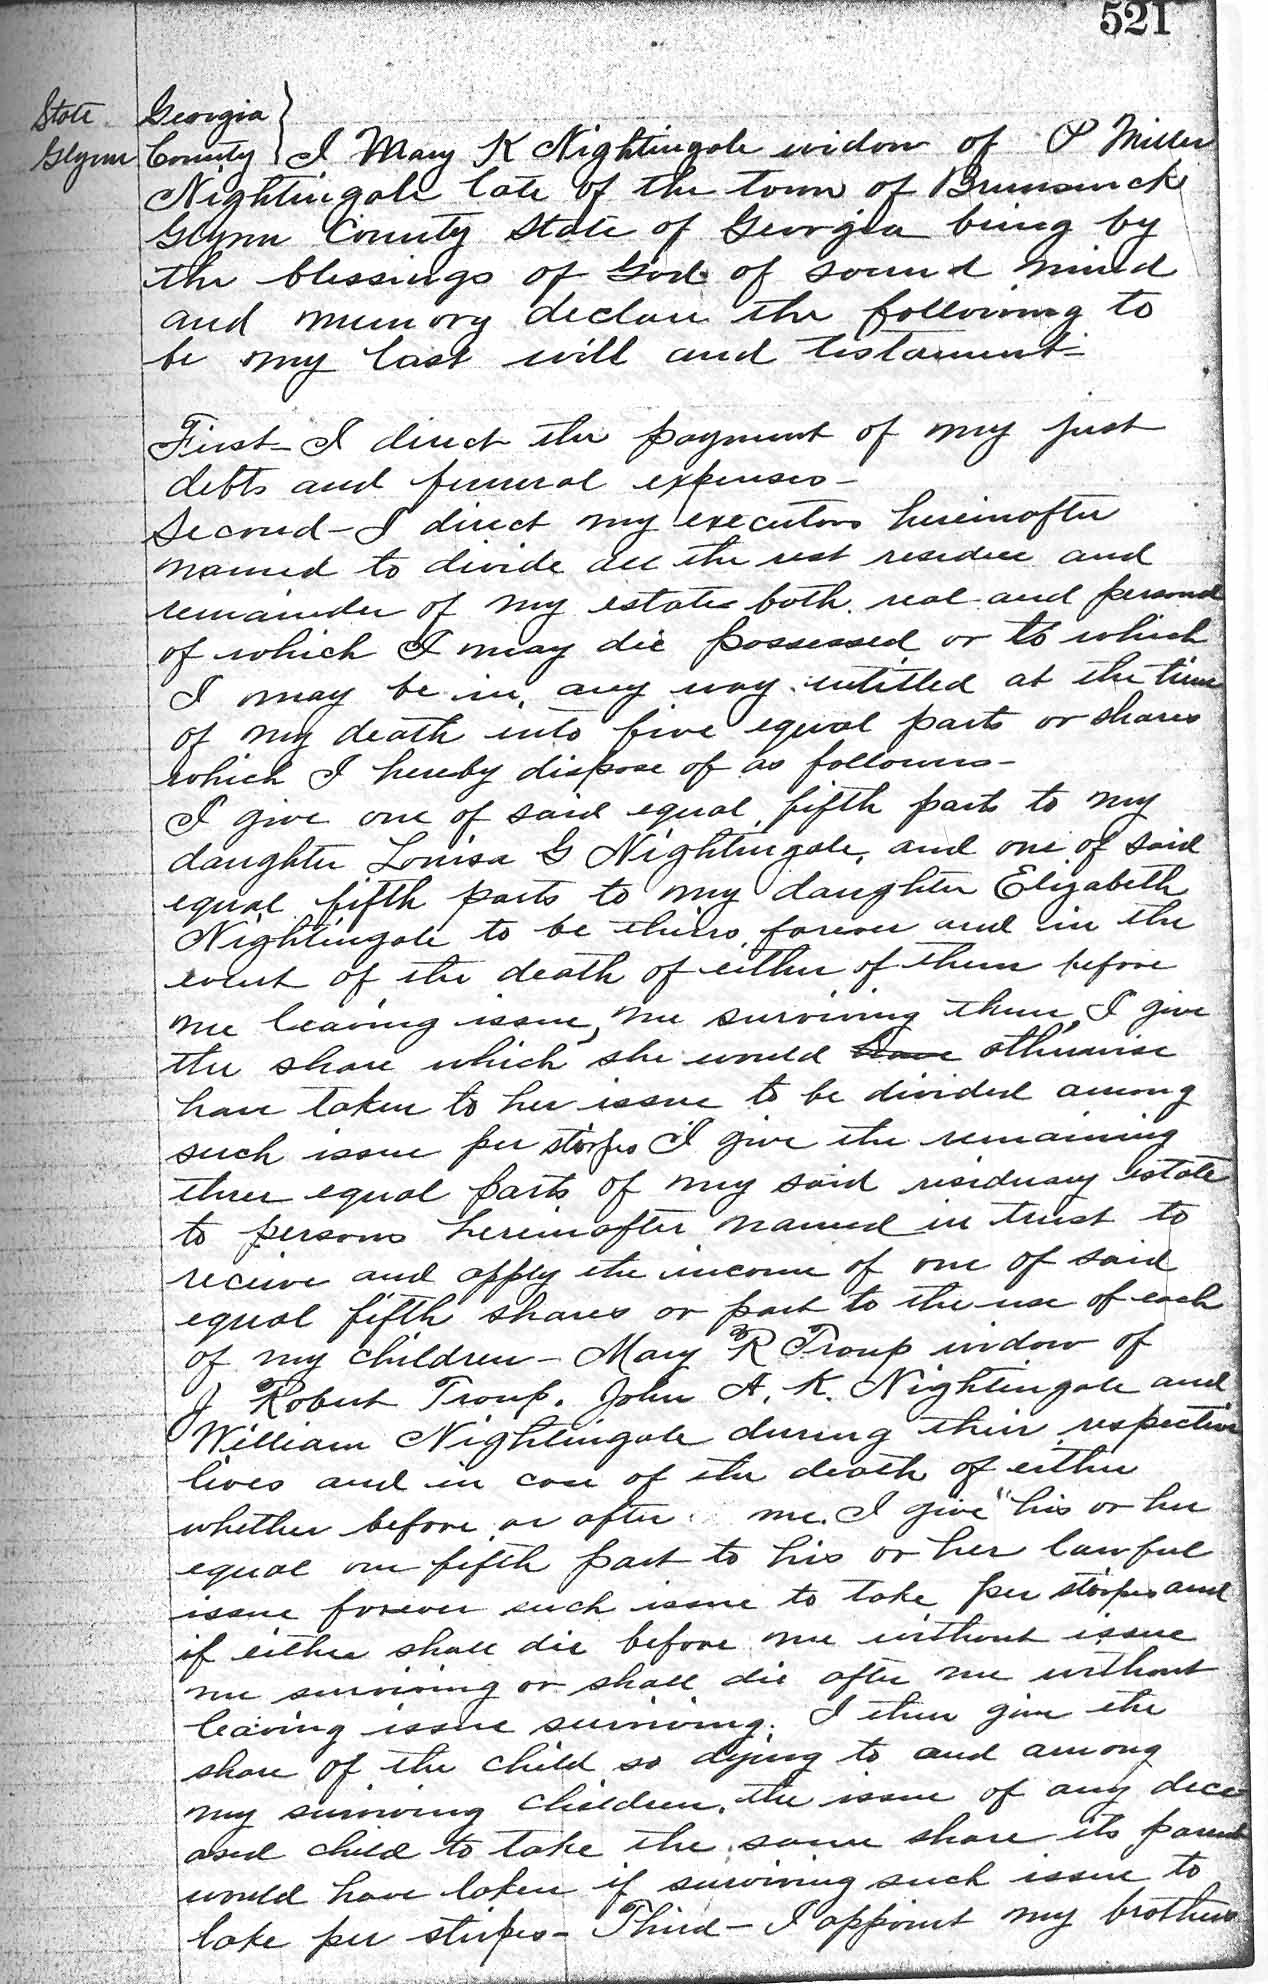 521
State Georgia }
Glynn County } I Mary K Nightingale widow of P Miller
Nightingale late of the town of Brunswick
Glynn County State of Georgia being by
the blessings of God of sound mind
and memory declare the following to
be my last will and testament-
First- I direct the payment of my just
debts and funeral expenses-
Second- I direct my executors hereinafter
named to divide all the rest residue and
remainder of my estate both real and personal
of which I may die possessed or to which
I may be in any way intitled at the time
of my death into five equal parts or shares
which I hereby dispose of as follows-
I give one of said equal fifth parts to my
daughter Louisa G Nightingale, and one of said
equal fifth parts to my daughter Elizabeth
Nightingale to be theirs forever and in the
event of the death of either of them before
me leaving issue, me surviving them, I give
the share which she would have otherwise
have taken to her issue to be divided among
such issue per stirpes I give the remaining
three equal parts of my said residuary estate
to persons hereinafter named in trust to
receive and apply the income of one of said
equal fifth shares or part to the use of each
of my children- Mary R Troup widow of
J Robert Troup. John A. K. Nightingale and
William Nightingale during their respective
lives and in case of the death of either
whether before or after me. I give "his or her
equal one fifth part to his or her lawful
issue forever such issue to take per stirpes and
if either shall die before me without issue
me surviving or shall die after me without
leaving issue surviving. I then give the
share of the child so dying to and among
my surviving children, the issue of any dece
ased child to take the same share its parent
would have taken if surviving such issue to
take per stirpes- Third- I appoint my brothers